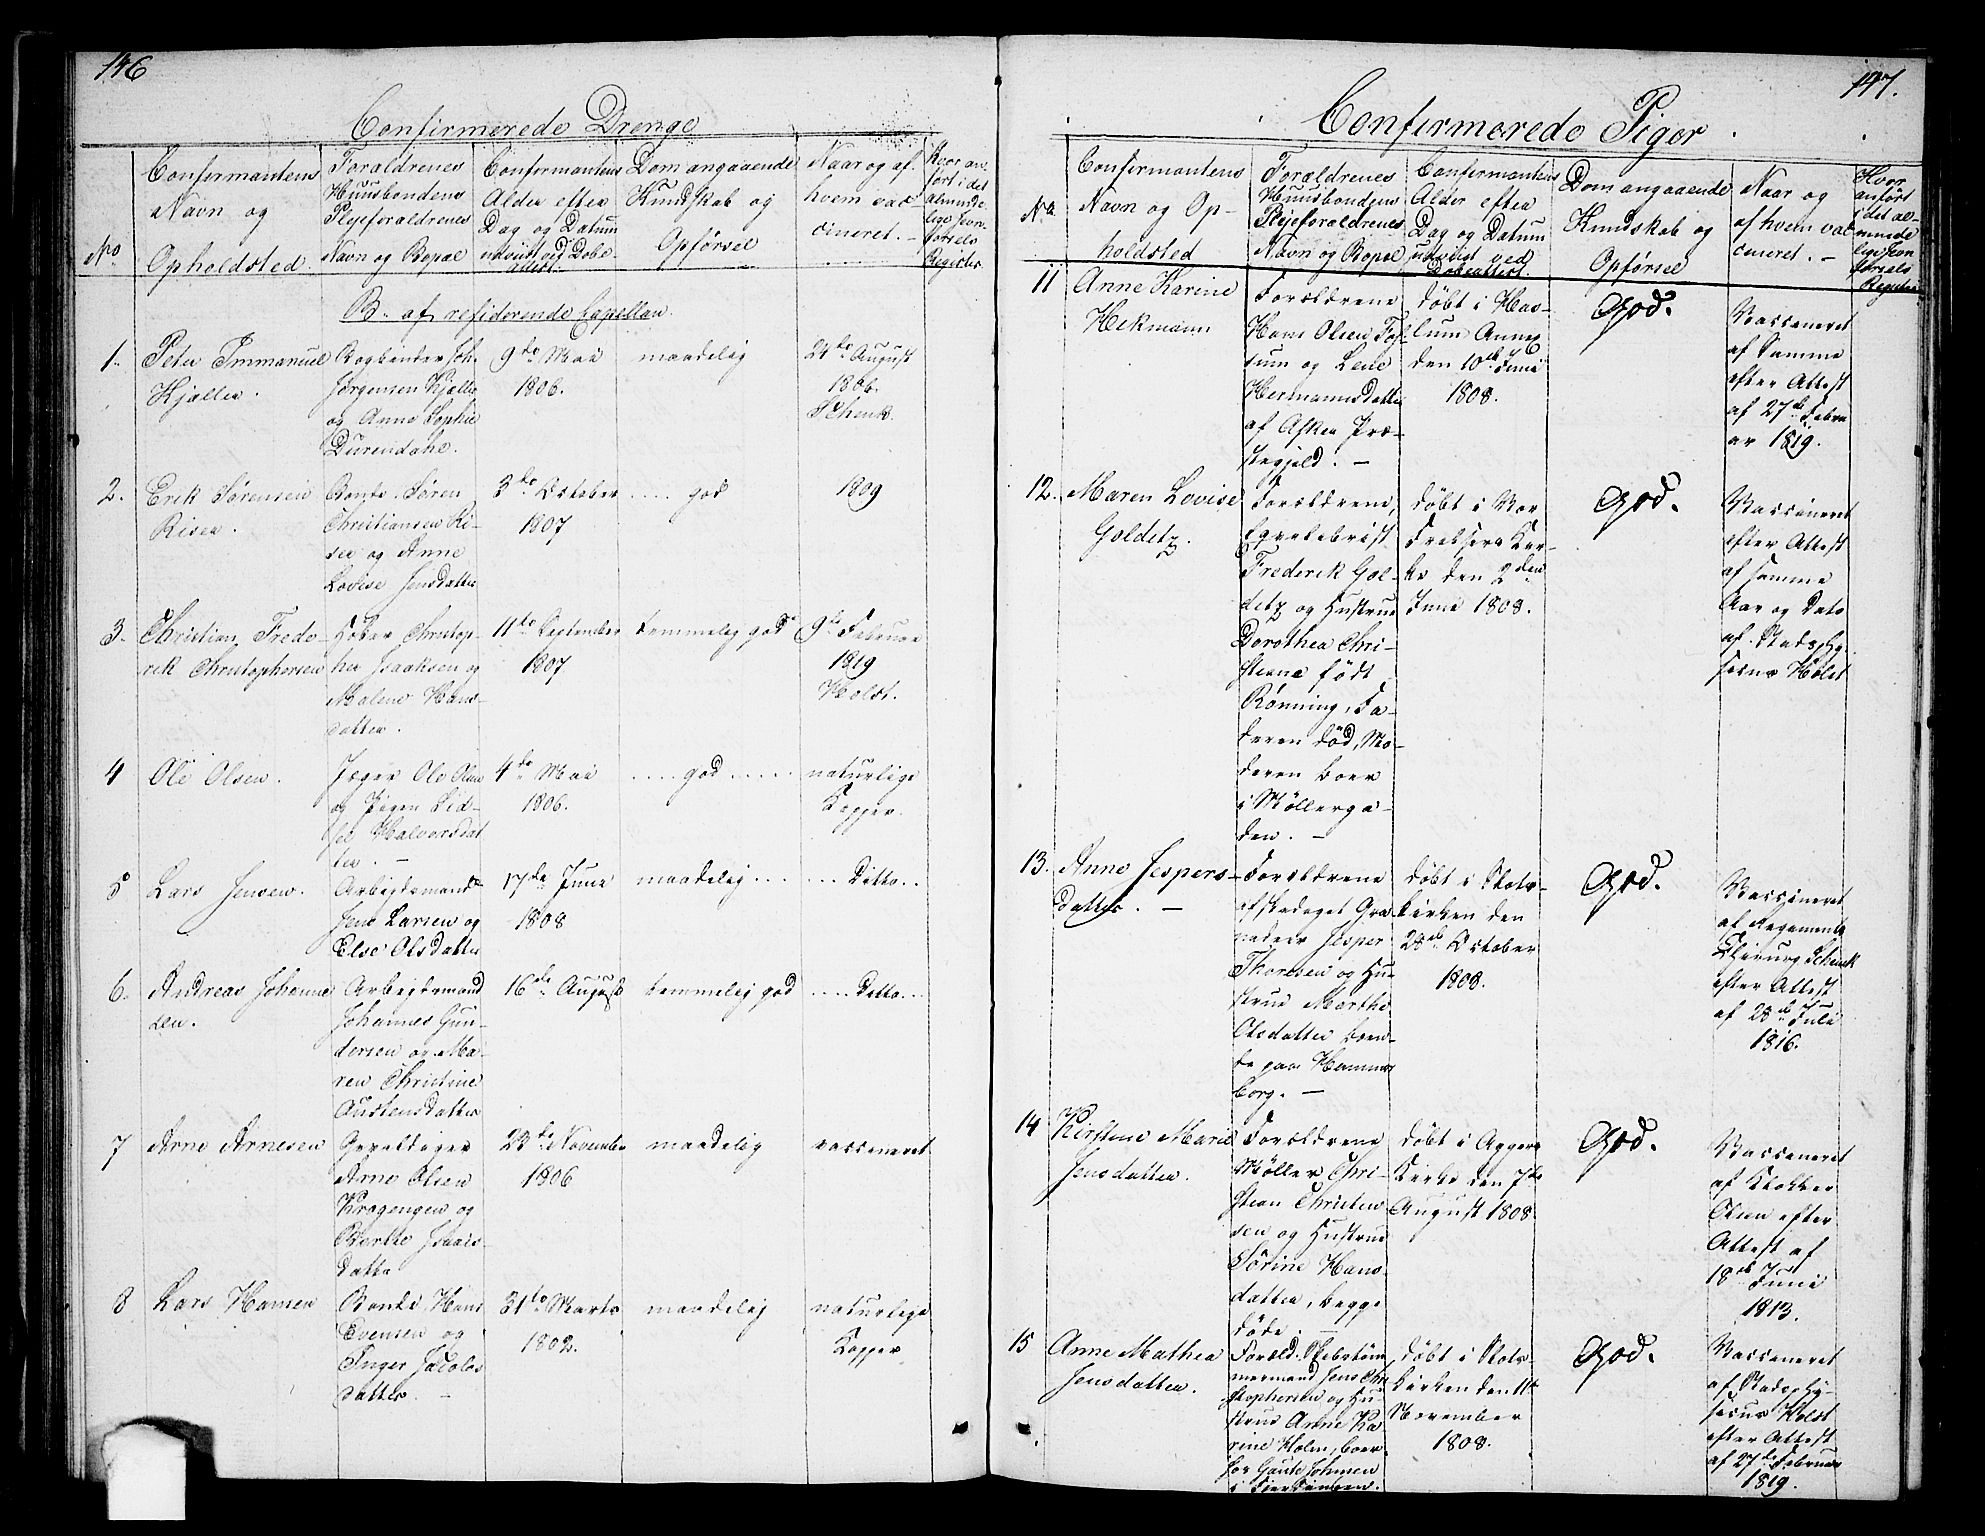 146
Confirmerede Drenge
No
Confirmantens
Navn og
Opholdsted.
Foraldrenes
Huusbondens
Plejeforaldrenes
Navn og Bopæl
Confirmantens
Alder efter
Dag og Datum
udviist ved Døbe-
attest.
Dom angaaende
Kundskab og
Opførsel
Naar og af
hvem vac-
cineret. –
Hvor an-
ført i det
alminde-
lige Jevn-
førsels
Register
B. af residerende Capellan.
1.
Peter Immanuel
Hjelter.
Bogbinder Joh.
Jørgensen Hjelte
og Anne Sophie
9de Mai
1806.
maadelig
24de August
1806.
Schenk.
2.
Erik Sørensen
Riser.
Bonde Søren
Christiansen Ri-
ser og Anne
Lovise Jensdatter
3de October
1807
..... god
1809
3.
Christian Frede-
rik Christophersen
Christop-
her Isaaksen og
Malene Hans-
datter.
11te September
1807
temmelig god
9de Februar
1819
Holst.
4
Ole Olsen.
Jæger Ole Olsen
og Jigen Lid-
sel Halvorsdat
ter. –
4de Mai
1806.
.... god .....
naturlige
Kopper.
5
Lars Jensen.
Arbejdsmand
Jens Larsen og
Else Olsdatter
17de Juni
1808
maadelig ....
... Ditto..
6.
Andreas Johanne
sen.
Arbejdsmand
Johannes Gun-
dersen og Ma-
ren Christine
Austensdatter
16de August
temmelig god
.... Ditto...
7
Arne Arnesen
Arne Olsen
Krogengen og
Berthe Isaacs-
datter
23de November
1806
maadelig
vaccineret
8
Lars Hansen
Bonde Hans
Evensen og
Inger Jacobs
datter. –
31te Marts
1802.
maadelig
naturlige
Kopper
147.
Confirmerede Piger.
No
Confirmantens
Navn og Op-
holdsted
Forældrenes
Huusbondens
Plejeforaldrenes
Navn og Bopel
Confirmantens
Alder efter
Dag og Datum
udviist ved
Døbeattest.
Dom angaaende
Kundskab og
Opførsel
Naar og
af hvem vac
cineret. –
Hvor
anført
i det al-
minde
lige Jevn
førsels
Register
11
Anne Karine
Hekmann
Forældrene
Hans Olsen Fos-
sum og Lene
Hermannsdatter
af Asker Præ-
stegjeld. –
døbt i Has-
lum Annex
den 10de Juni
1808.
God.
Vaccineret
af Samme
efter Attest
af 27de Febru
ar 1819.
12.
Maren Lovise
Golditz.
Forældrene,
Frederik Gol-
ditz og Hustrue
Dorothea Chri-
stiane født
Rønning, Fa-
deren død, Mo-
deren boer
i Møllerga-
den. –
døbt i Vor
Frelsers Kir-
ke den 2den
Juni 1808.
God.
Vaccineret
efter Attest
af samme
Aar og Dato
af Stadsphy-
sicus Holst
13.
Anne Jespers-
datter. –
Forældrene
afskediget Gre
nadeer Jesper
Thoresen og Hu-
strue Marthe
Olsdatter boen-
de paa Hammers
borg. –
døbt i Slots-
kirken den
28de October
1808.
God.
Vaccineret
af Regiments
Chirurg Schenk
efter Attest
af 28de Juli
1816.
14
Kirstine Marie
Jensdatter.
Forældrene
Møller Chri-
stian Christen
sen og Hustrue
Sørine Hans-
datter, begge
døde. –
døbt i Aggers
Kirke den 7de
August 1808.
God.
Vaccineret
af Klokker
Olsen efter
Attest af
18de Juni
1813.
15
Anne Mathea
Jensdatter.
Foræld. Skibstøm
mermand Jens Chri
stophersen og Hu
strue Anne Ka
rine Holm, boer
hos Gaute Johnsen
i Fierdingen.
døbt i Slots-
kirken den 11te
November
1808.
God.
Vaccineret
af Stadsphy-
sicus Holst
efter Attest
af 27de Februar
1819.